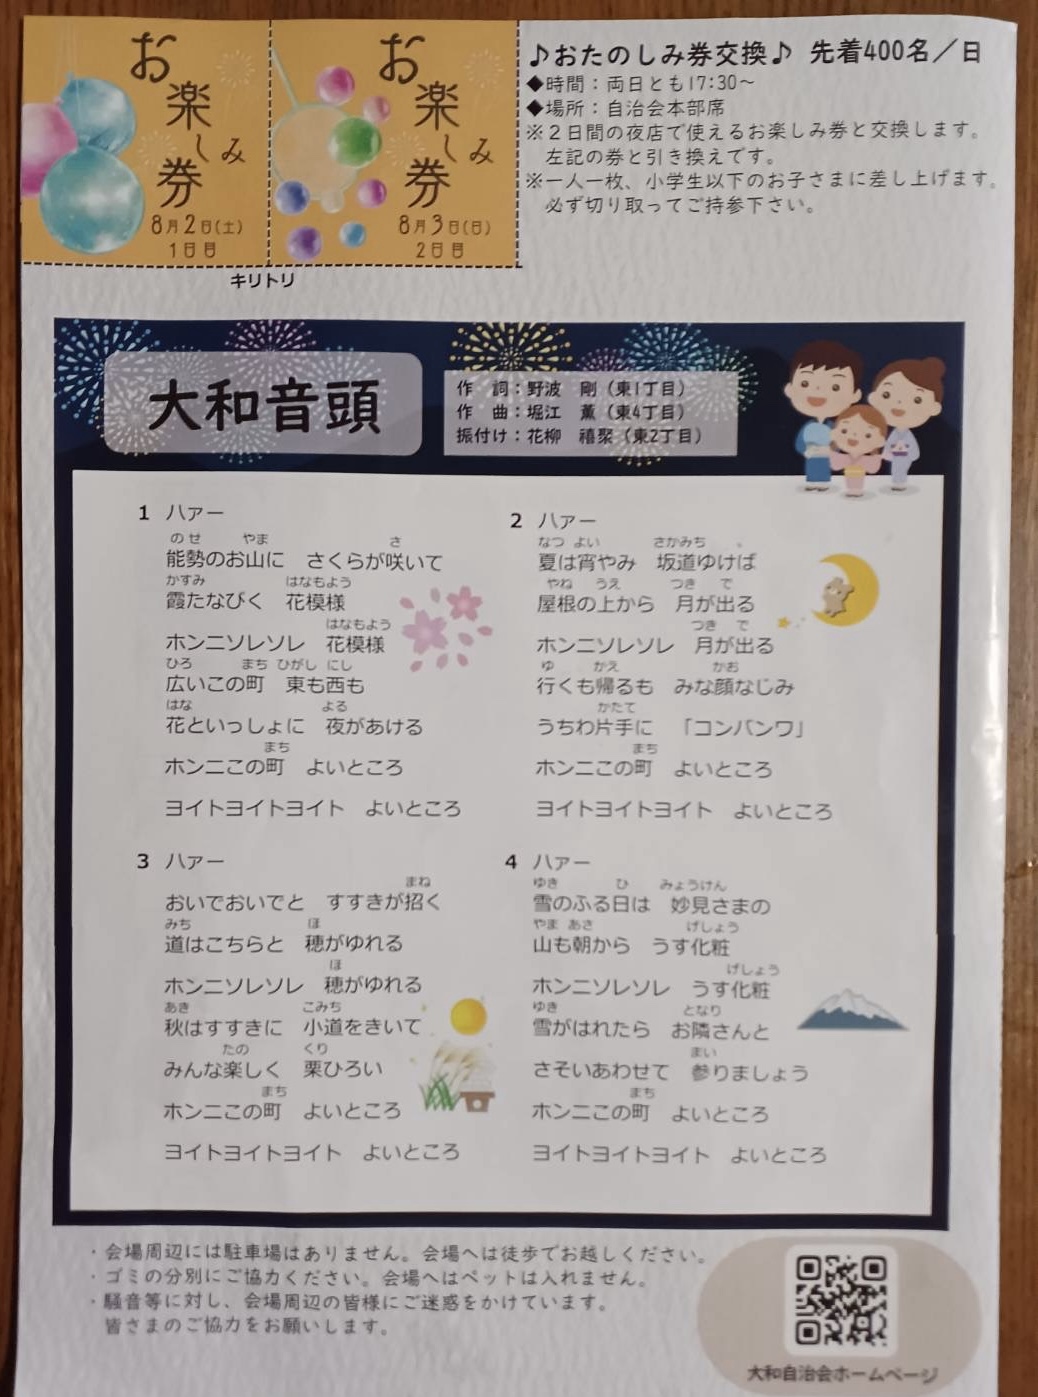 お楽しみ券
8月2日(土)
1日目
お楽しみ券
8月3日(日)
2日目
キリトリ
♪おたのしみ券交換♪ 先着400名／日
◆時間：両日とも17:30～
◆場所：自治会本部席
※２日間の夜店で使えるお楽しみ券と交換します。
左記の券と引き換えです。
※一人一枚、小学生以下のお子さまに差し上げます。
必ず切り取ってご持参下さい。
大和音頭
作　詞：野波　剛（東1丁目）
作　曲：堀江　薫（東4丁目）
振付け：花柳　禧聚（東2丁目）
1 ハァー
のせ やま さ
能勢のお山に　さくらが咲いて
かすみ はなもよう
霞たなびく　花模様
はなもよう
ホンニソレソレ　花模様
ひろ まち ひがし にし
広いこの町　東も西も
はな よる
花といっしょに　夜があける
まち
ホンニこの町　よいところ
ヨイトヨイトヨイト　よいところ
2 ハァー
なつ よい さかみち
夏は宵やみ　坂道ゆけば
やね うえ つき で
屋根の上から　月が出る
つき で
ホンニソレソレ　月が出る
ゆ かえ かお
行くも帰るも　みな顔なじみ
かたて
うちわ片手に　「コンバンワ」
まち
ホンニこの町　よいところ
ヨイトヨイトヨイト　よいところ
3 ハァー
まね
おいでおいでと　すすきが招く
みち ほ
道はこちらと　穂がゆれる
ほ
ホンニソレソレ　穂がゆれる
あき こみち
秋はすすきに　小道をきいて
たの くり
みんな楽しく　栗ひろい
まち
ホンニこの町　よいところ
ヨイトヨイトヨイト　よいところ
4 ハァー
ゆき ひ みょうけん
雪のふる日は　妙見さまの
やま あさ げしょう
山も朝から　うす化粧
げしょう
ホンニソレソレ　うす化粧
ゆき となり
雪がはれたら　お隣さんと
まい
さそいあわせて　参りましょう
まち
ホンニこの町　よいところ
ヨイトヨイトヨイト　よいところ
・会場周辺には駐車場はありません。会場へは徒歩でお越しください。
・ゴミの分別にご協力ください。会場へはペットは入れません。
・騒音等に対し、会場周辺の皆様にご迷惑をかけています。
皆さまのご協力をお願いします。
大和自治会ホームページ